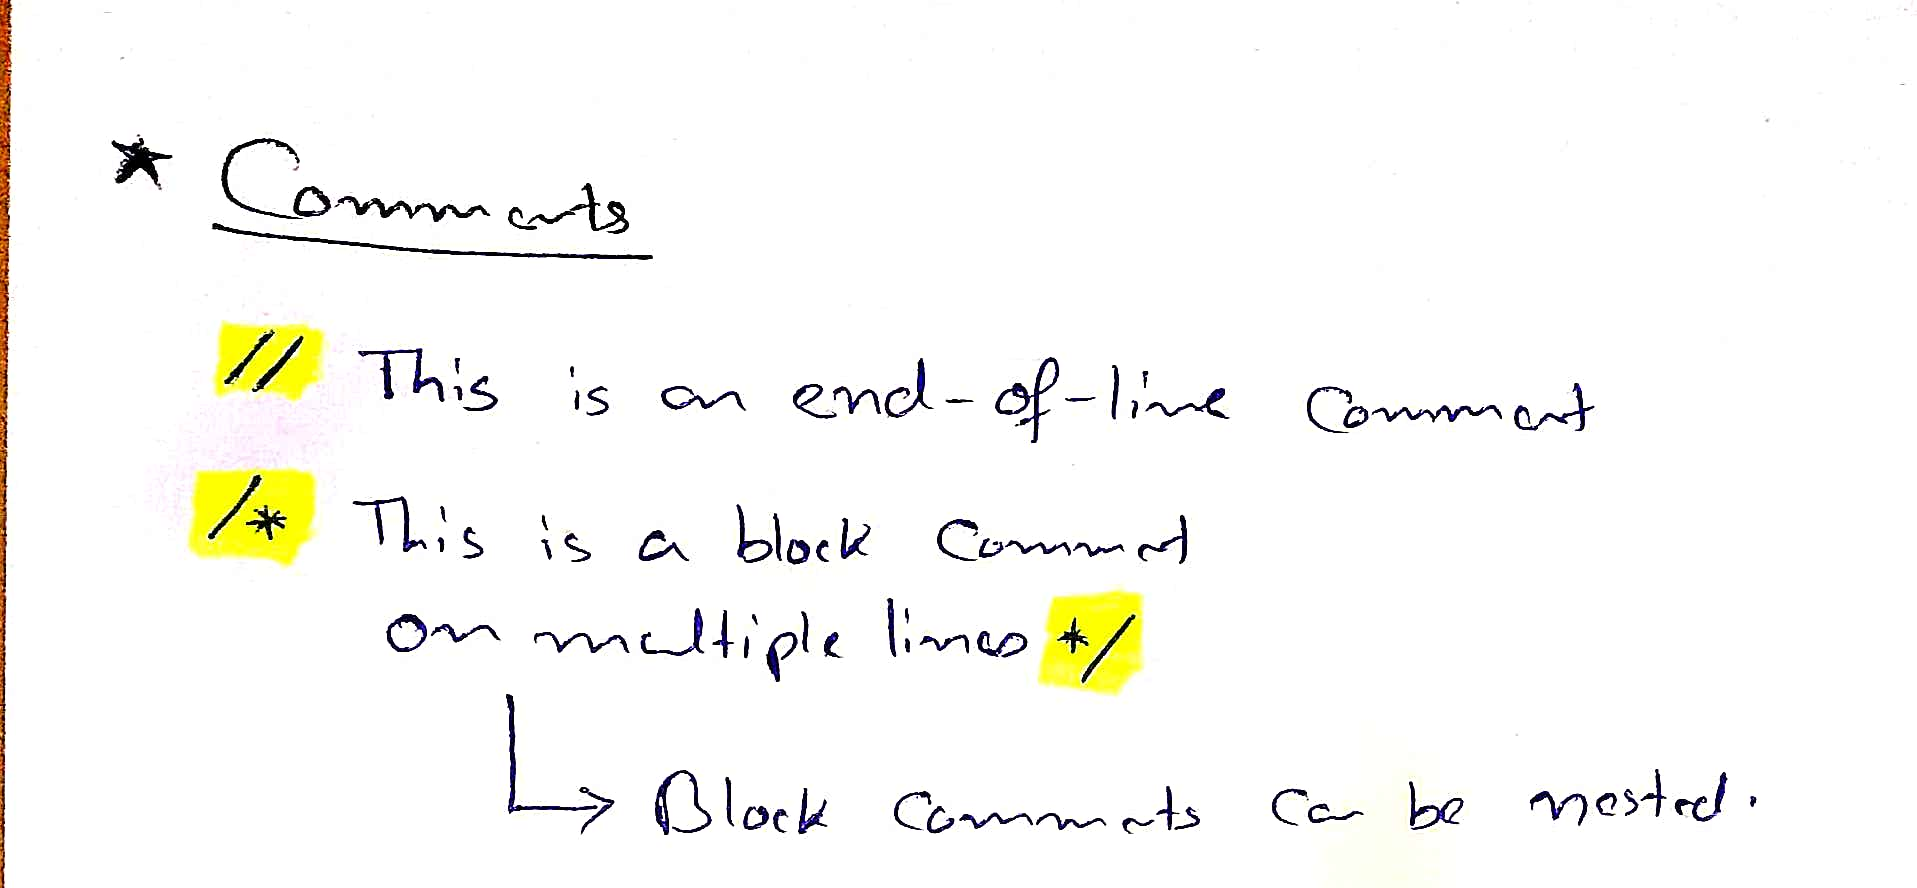 ★ Comments
// This is an end-of-line comment
/* This is a block comment
on multiple lines */
↳ Block comments can be nested.